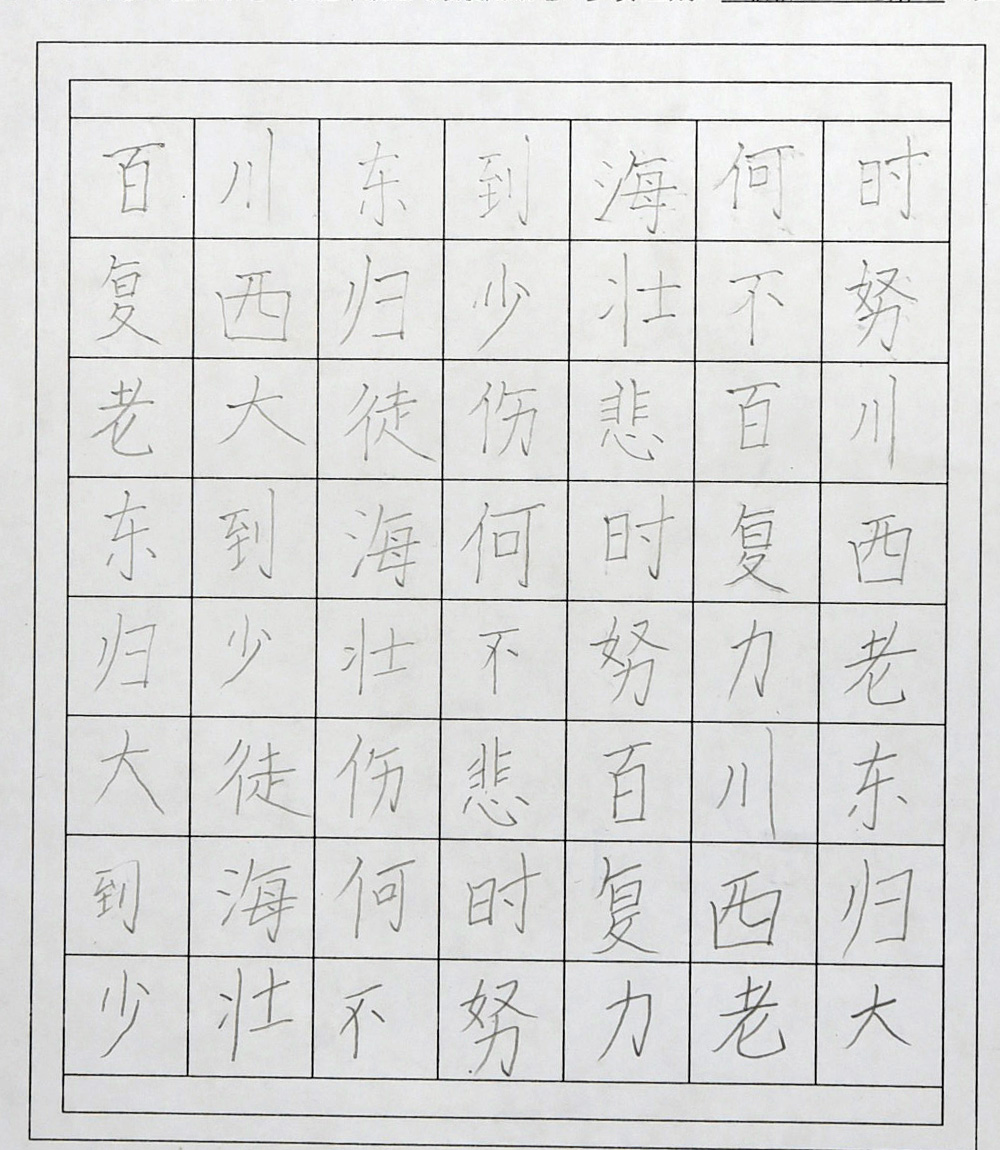 百川东到海何时
复西归少壮不努
老大徒伤悲百川
东到海何时复西
归少壮不努力老
大徒伤悲百川东
到海何时复西归
少壮不努力老大